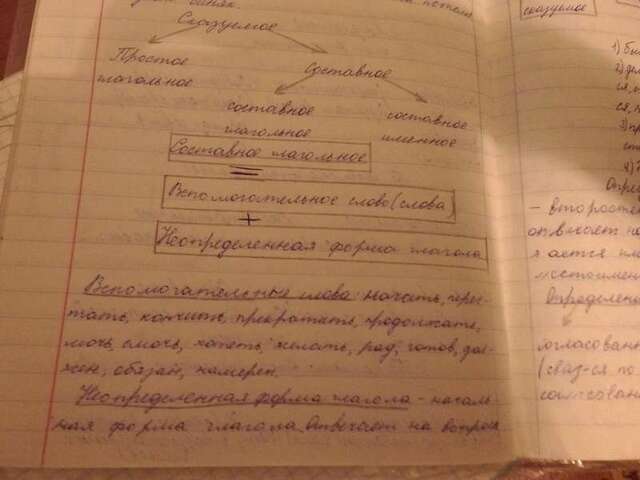 Сказуемое
Простое
глагольное
Составное
составное
глагольное
составное
именное
Составное глагольное
=
Вспомогательное слово (слова)
+
Неопределенная форма глагола
Вспомогательные слова: начать, перес-
тать, кончить, прекратить, продолжать,
мочь, смочь, хотеть, желать, рад, готов, дол-
жен, обязан, намерен.
Неопределенная форма глагола - началь-
ная форма глагола. Отвечает на вопросы
сказуемое
1)
2)
3)
4)
- второстеп
отвечает на
Определен
согласован
(связ-ся по
согласован